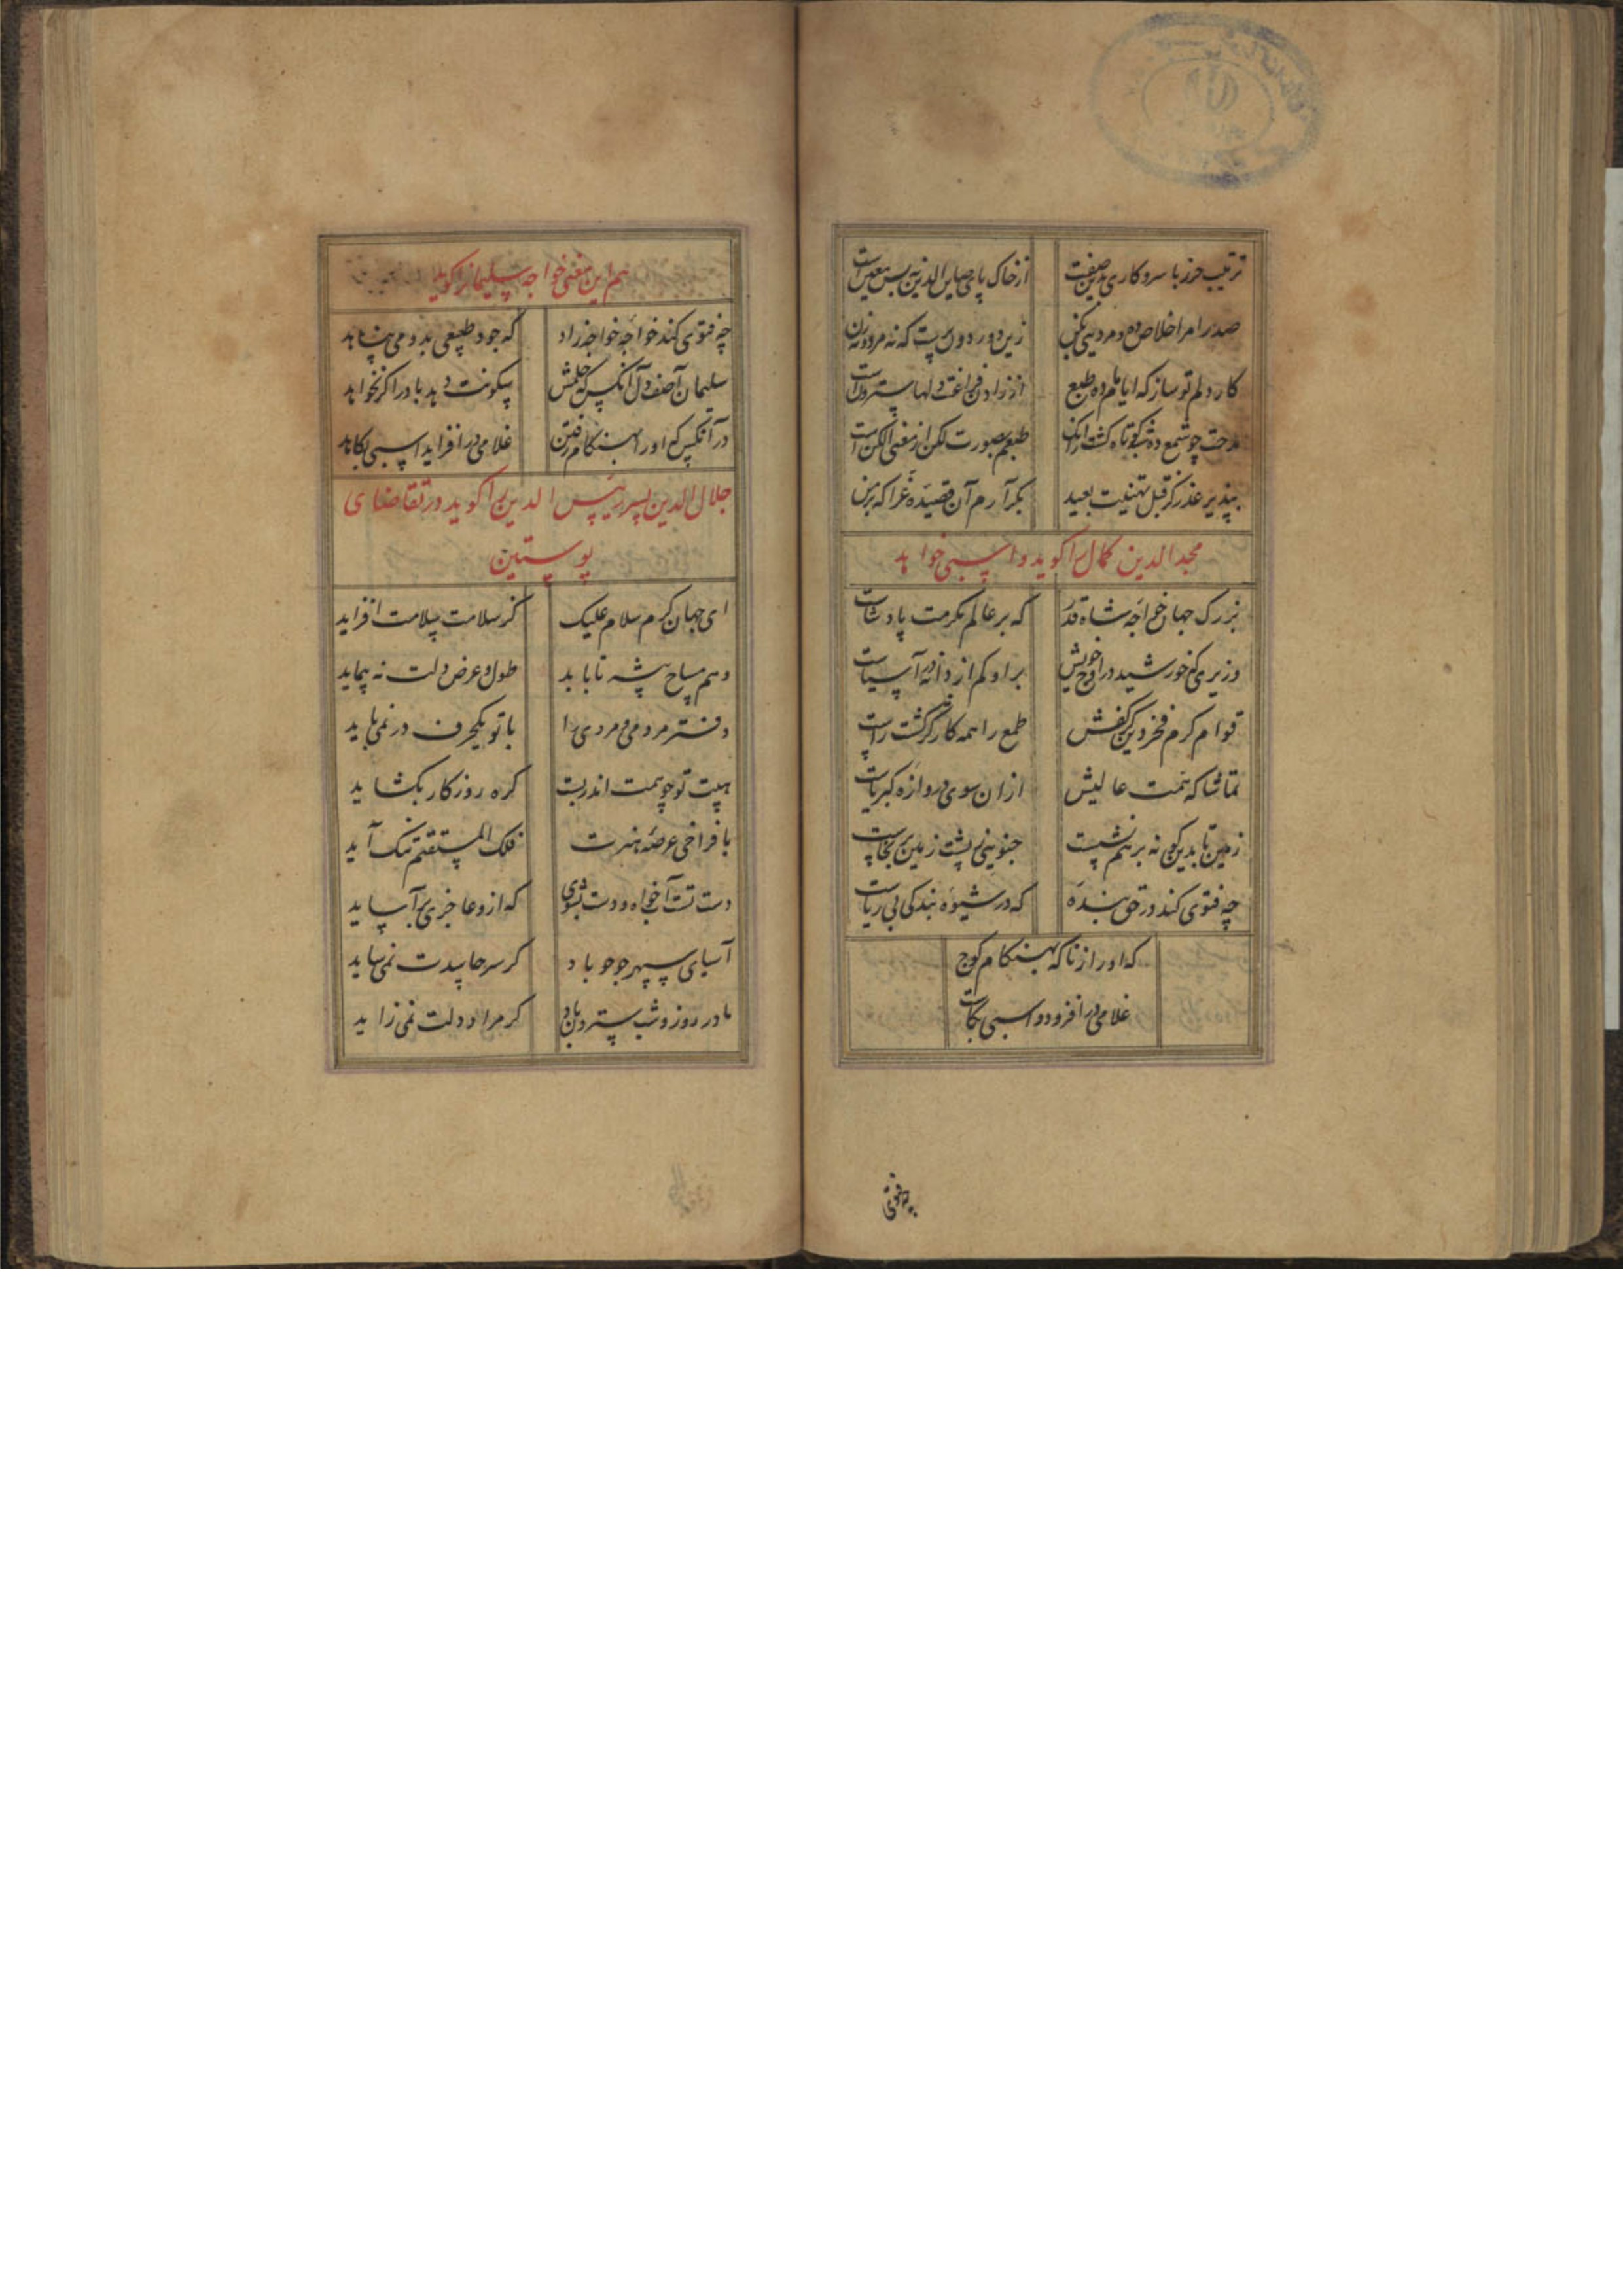 ترتیب حرز با سر و کاری بدین صفت از خاک پای صاین الدین به بس معین است
صدرا مرا خلاص ده و مردمیی بکن زین دور دون پست که نه مرد و نه زن است
کار دلم تو ساز که ایام طبع از زادن فراغت دلها سترون است
مدحت چو شمع ده شب کوتاه گشت از آنک طبعم بصورت لکن از معنی الکن است
بپذیر عذر کز قبل تهنیت بعید بکر آرم آن قصیده غرا که بر من
مجد الدین کمال را گوید و اسبی خواهد
بزرگ جهان خواجه شاه قدر که بر عالم مکرمت پادشاست
وزیری که خورشید در اوج خویش بر او کم از دانه در آسیاست
قوام کرم فخر دین کز کفش طمع را همه کار گشت راست
تماشاگه همت عالیش از ان سوی دروازه کبریاست
زمین تا بدین گونه بر هم نشست جنوبی پشت زمین بر نخاست
چه فتوی کند در حق بنده که در شیوه بندگی بی ریاست
که او را ز ناگه بهنگام کوچ
غلامی در افزود و اسبی بکاست
چه فتوی
هم این معنی خواجه سلیمان را گوید
چه فتوی کند خواجه خواجه زاد که جود طبیعی بدو می پناهد
سلیمان آصف دل آنکس که حلمش سکونت دهد باد را گر نخواهد
در آنکس که او را بهنگام رفتن غلامی در افزاید اسبی بکاهد
جلال الدین پسر رئیس الدین را گوید در تقاضای
پوستین
ای جهان کرم سلام علیک کز سلامت سلامت افزاید
وهم مساح پیشه تا بابد طول و عرض دلت نه پیماید
دفتر مردمی و مردی را با تو یکحرف در نمی باید
هیبت تو چو همت اندر بست گره روزگار بگشاید
با فراخی عرصه هنرت فلک المستقیم تنگ آید
دست تست آخواه و دست بشوی که ازو عاجزی بر آساید
آسیای سپهر جوجو باد گر سر حاسدت نمی ساید
مادر روز و شب سترون باد گر مراد دلت نمی زاید